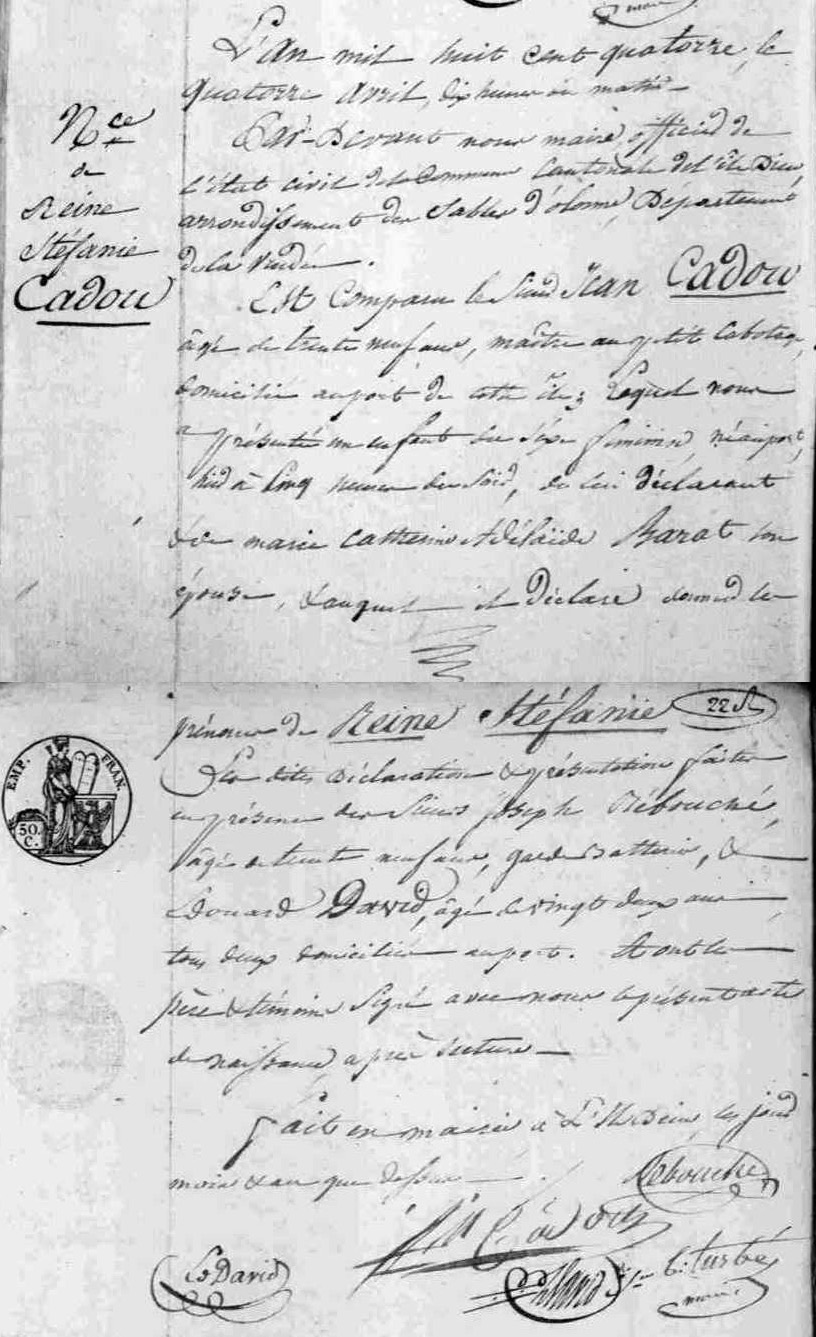 L'an mil huit cent quatorze, le
quatorze avril, dix heures du matin
Par-Devant nous maire, officier de
l'état civil de la Commune Cantonale de l'ile Dieu,
arrondissement des Sables d'olonne, Département
de la Vendée.
Nce
de
Reine
Stéfanie
Cadou
Est Comparu le Sieur Jean Cadou
âgé de trente neuf ans, maître au petit Cabotage,
domicilié au port de cette île; Lequel nous
a présenté un enfant du sexe féminin, né au port,
à Cinq heures du Soir, de lui déclarant
& de marie Catherine Adélaïde Barat son
épouse, & auquel il Déclare donner les
prénoms de Reine Stéfanie
22
EMP. FRAN.
50.
C.
Les dites Déclaration & présentation faites
en présence des Sieurs Joseph Rébouché,
âgé de trente neuf ans, garde Batterie, &
Edouard David, âgé de vingt deux ans
tous deux domiciliés au port. Et ont les
père & témoins Signé avec nous le présent acte
de naissance après lecture
Fait en mairie à L'Ile Dieu, les jour
mois & an que dessus
Rebouché
Jn Cadou
Ed David
C. Turbé
maire.